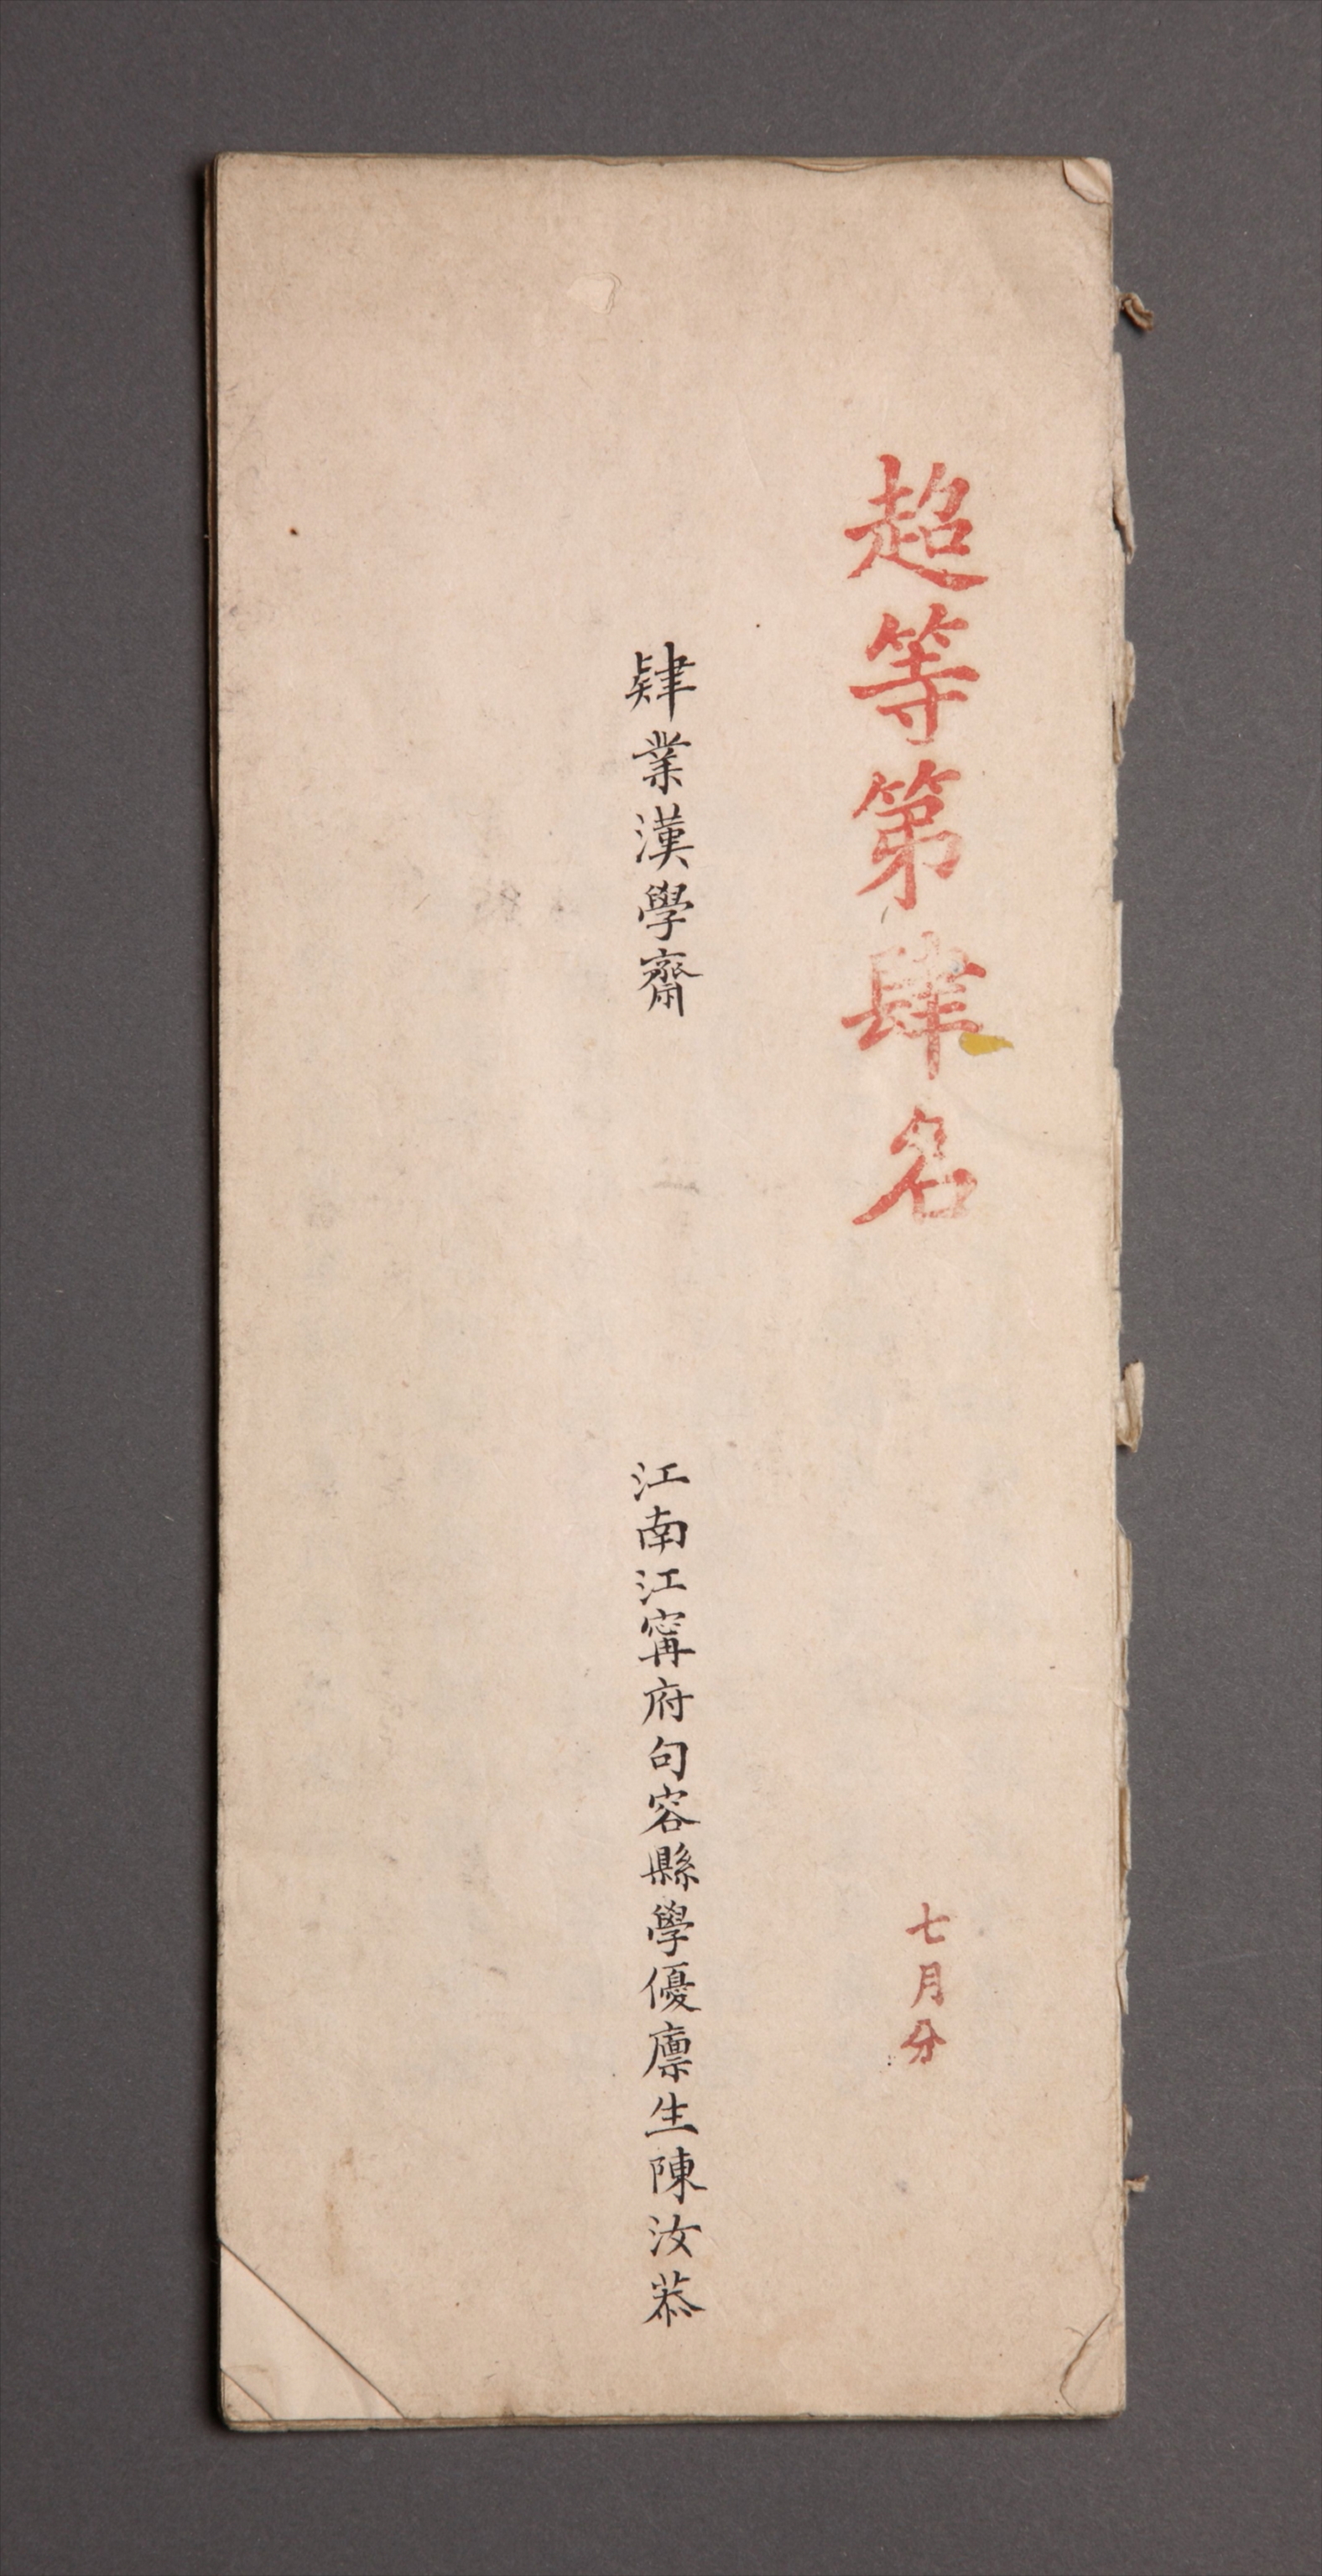 超等第肆名
七月分
肄業漢學齋
江南江甯府句容縣學優廪生陳汝恭